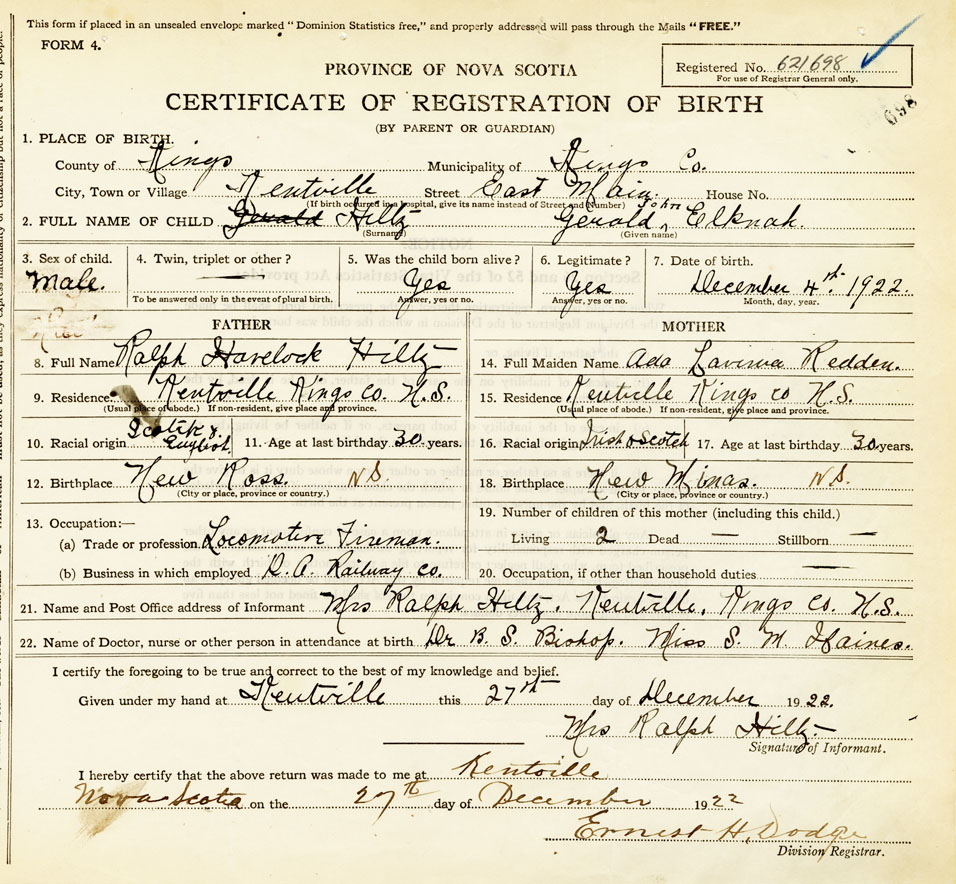 This form if placed in an unsealed envelope marked "Dominion Statistics free," and properly addressed will pass through the Mails "FREE."
FORM 4.
Registered No. 621698
For use of Registrar General only.
698
PROVINCE OF NOVA SCOTIA
CERTIFICATE OF REGISTRATION OF BIRTH
(BY PARENT OR GUARDIAN)
1. PLACE OF BIRTH.
County of Kings Municipality of Kings Co.
City, Town or Village Kentville Street East Main House No.
(If birth occurred in a hospital, give its name instead of Street and Number)
2. FULL NAME OF CHILD Gerald Hiltz Gerald John Elknah.
(Surname) (Given name)
3. Sex of child. 4. Twin, triplet or other? 5. Was the child born alive? 6. Legitimate? 7. Date of birth.
Male. — Yes Yes December 4th. 1922.
To be answered only in the event of plural birth. Answer, yes or no. Answer, yes or no. Month, day, year.
FATHER
8. Full Name Ralph Havelock Hiltz
9. Residence. Kentville Kings Co. N.S.
(Usual place of abode.) If non-resident, give place and province.
10. Racial origin Scotch & English 11. Age at last birthday 30 years.
12. Birthplace New Ross. N.S.
(City or place, province or country.)
13. Occupation:—
(a) Trade or profession Locomotive Fireman.
(b) Business in which employed D. A. Railway co.
MOTHER
14. Full Maiden Name Ada Lavinia Redden.
15. Residence Kentville Kings co N.S.
(Usual place of abode.) If non-resident, give place and province.
16. Racial origin Irish & Scotch 17. Age at last birthday 30 years.
18. Birthplace New Minas. N.S.
(City or place, province or country.)
19. Number of children of this mother (including this child.)
Living 2 Dead — Stillborn —
20. Occupation, if other than household duties —
21. Name and Post Office address of Informant Mrs Ralph Hiltz. Kentville. Kings Co. N.S.
22. Name of Doctor, nurse or other person in attendance at birth Dr B. S. Bishop. Miss S. M. Haines.
I certify the foregoing to be true and correct to the best of my knowledge and belief.
Given under my hand at Kentville this 27th day of December 1922.
Mrs Ralph Hiltz.
Signature of Informant.
I hereby certify that the above return was made to me at Kentville
Nova Scotia on the 27th day of December 1922
Ernest H. Dodge
Division Registrar.